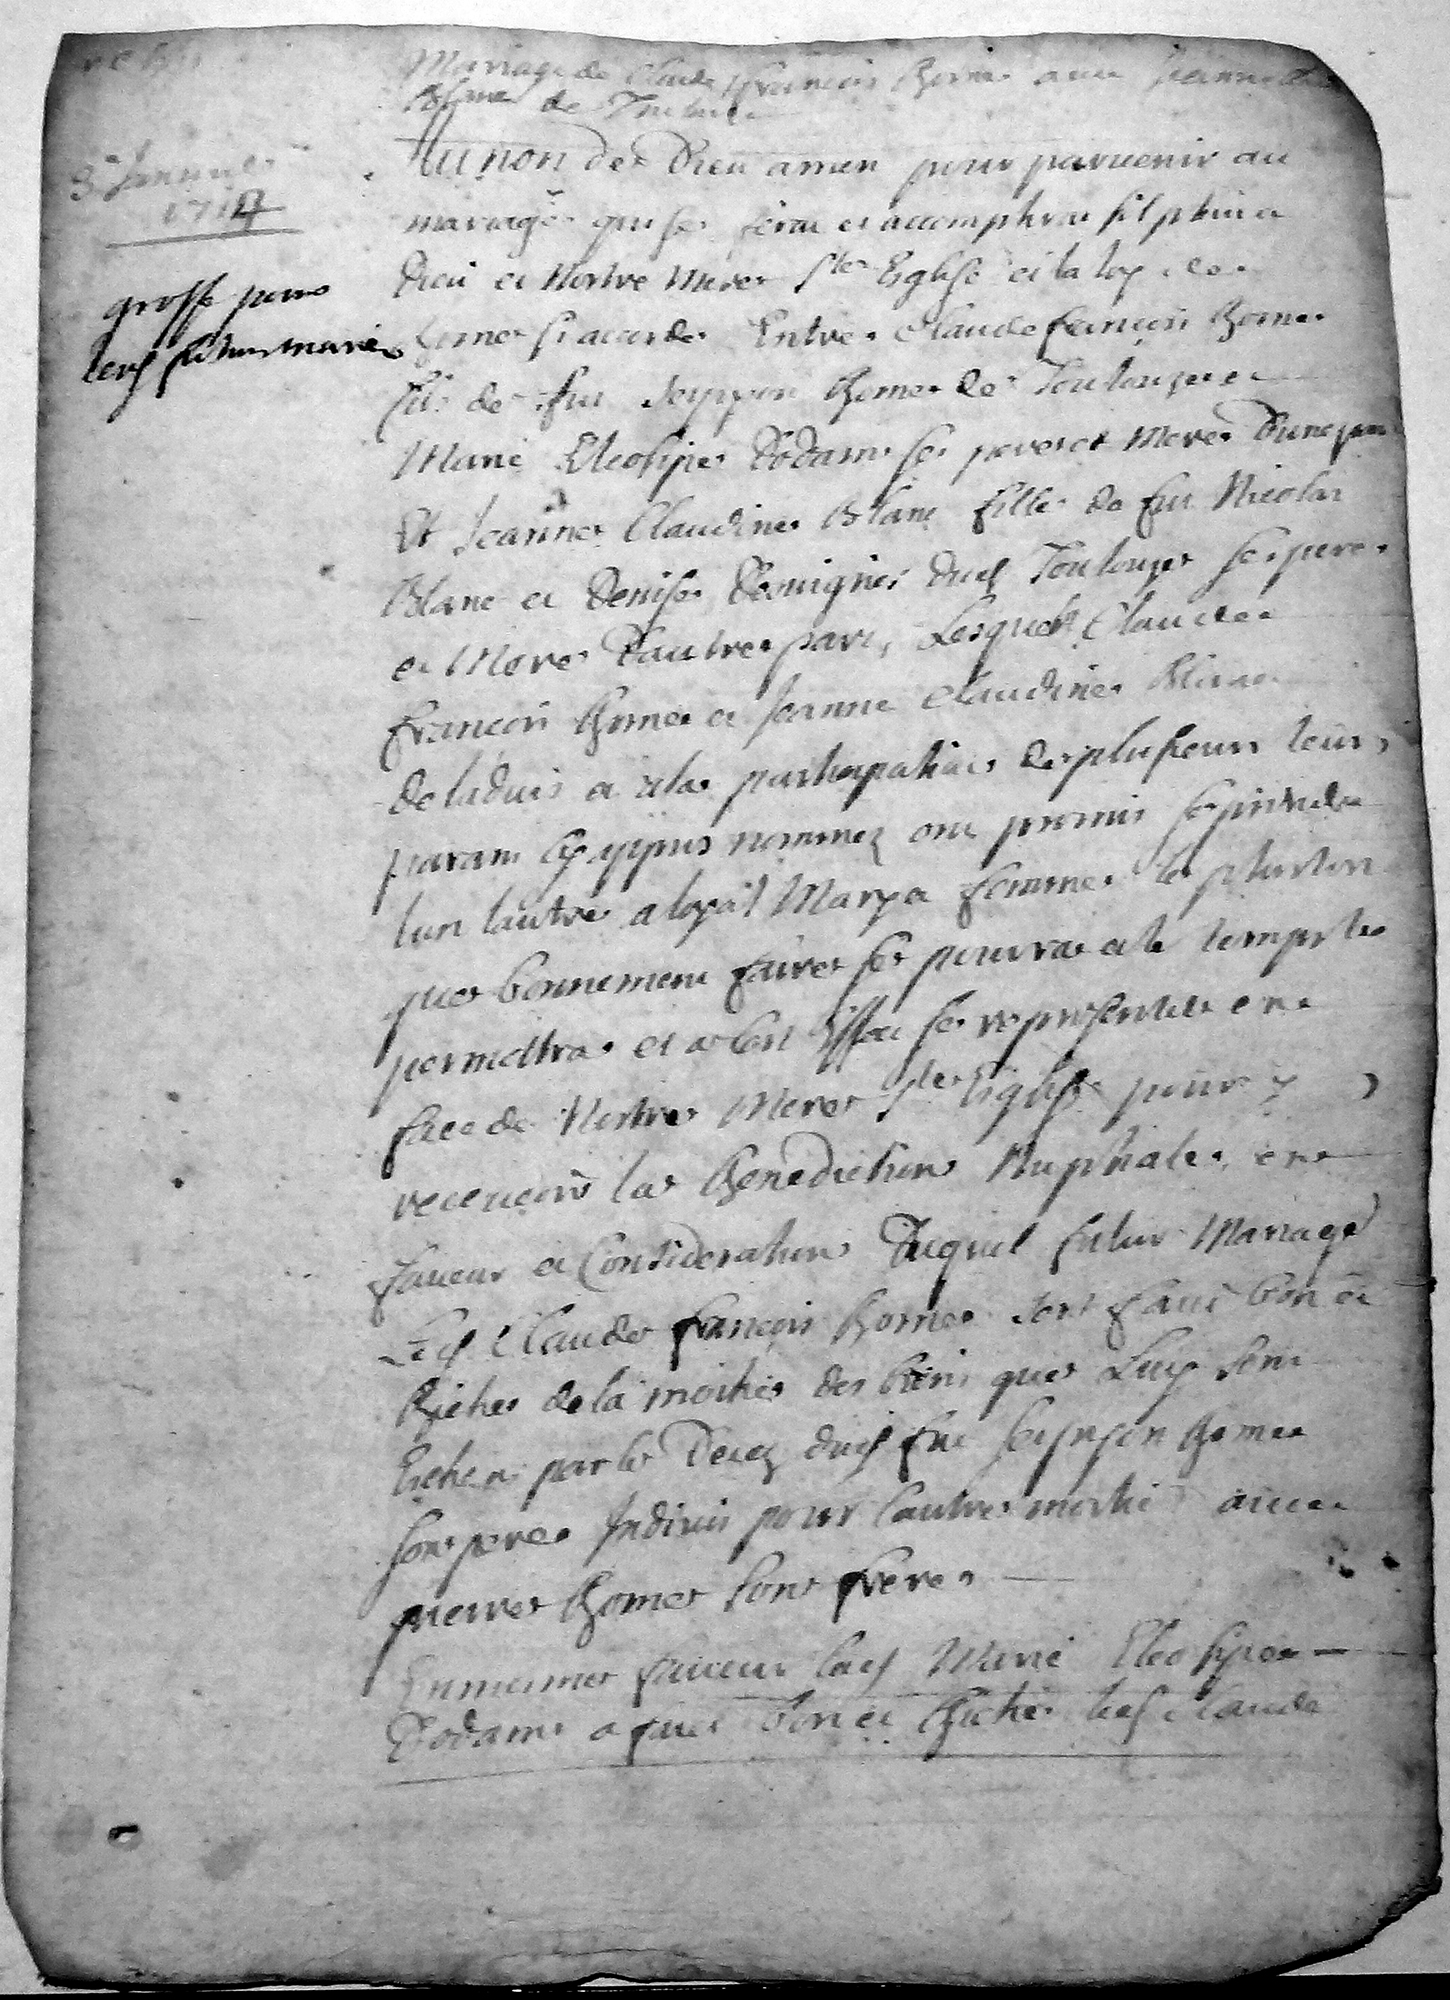 Mariage de Claude François Bome avec Jeanne
Blanc de
3e Janvier
1714
Au non de Dieu amen pour paruenir au
mariage qui se fera et accomplira sil plait a
Dieu et Nostre Mere Ste Eglise et la loy de
grosse pour
led futur marié
Rome si accorde Entre Claude francois Bome
fils de feu Bome de Toulouze et
Marie Dodane ses pere et Mere Dune part
Et Jeanne Claudine Blanc fille de feu Nicolas
Blanc et Denise dud Toulouze ses pere
et Mere Dautre part, Lesquels Claude
francois Bome et Jeanne Claudine Blanc
de laduis et de la participation de plusieurs leurs
parans cy nommez ont promis se prendre
lun lautre a loyal Mary et femme le plustost
que bonnement faire se pourra et le temps le
permettra et a cest effect se representer en
face de Nostre Mere Ste Eglise pour y
receuoir la Benediction Nuptiale, en
faueur et Consideration Duquel futur Mariage
Led Claude francois Bome sest faict bon et
Riche de la moitie des biens que Luy sont
par le Deces dud feu Bome
son pere Indiuis pour lautre moitie auec
pierre Bome son frere
En mesme faueur lad Marie
Dodane a fait bon et Riche led Claude